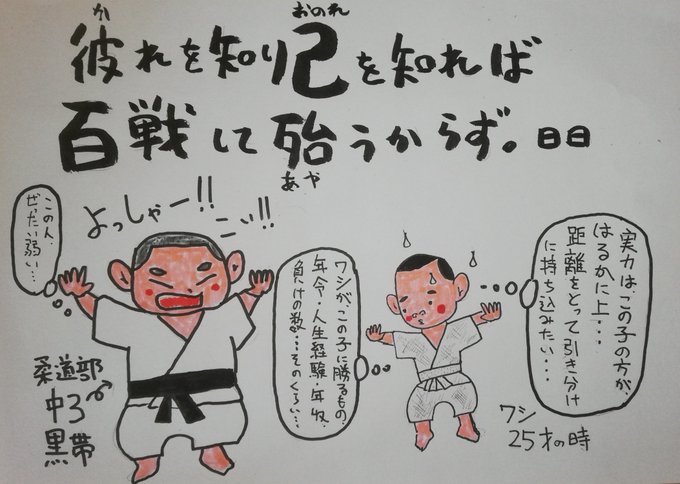 か おのれ
彼れを知り己を知れば
百戦して殆うからず。日日
あや
よっしゃー!!
こい!!
この人、
ぜったい弱い・・・
柔道部
中3
黒帯
ワシが、この子に勝るもの。
年令・人生経験・年収・
負けの数・・・そのくらい・・・
実力は、この子の方が、
はるかに上・・・
距離をとって引き分け
に持ち込みたい・・・
ワシ
25才の時